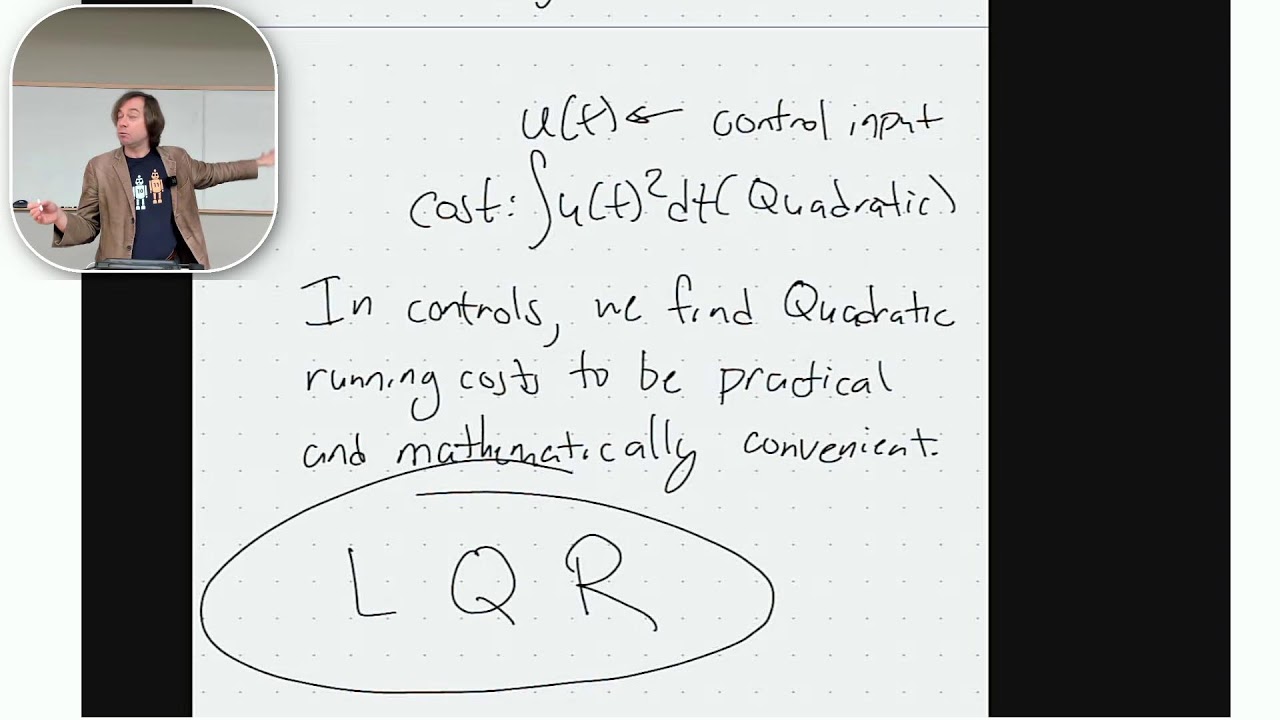 u(t) ← control input
cost: ∫u(t)²dt (Quadratic)
In controls, we find Quadratic
running costs to be practical
and mathematically convenient.
L Q R